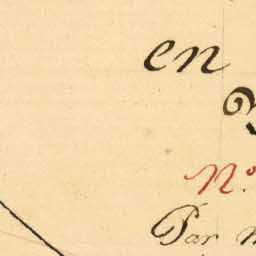 en
N.º
Par